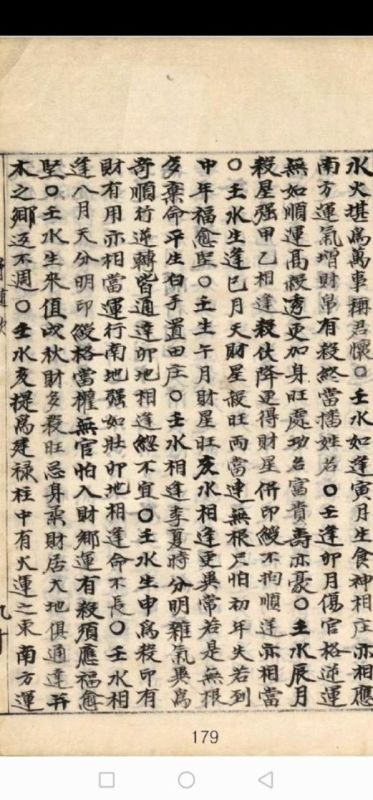 水火堪為萬事稱君懷〇壬水如逢寅月生食神相庄亦相應
南方運氣增財帛有殺終當播姓名〇壬逢卯月傷官格逆運
無如順運高殺透更加身旺處功名富貴壽亦豪〇壬水辰月
殺星强甲乙相逢殺伏降更得財星併印綬不拘順逆亦相當
〇壬水生逢巳月天財星殺旺両當連無根只怕初年失若到
申年福愈堅〇壬生午月財星旺亥水相逢更異常若是無根
多棄命平生白手置田庄〇壬水相逢季夏時分明雜氣異為
奇順行逆轉皆通達卯地相逢總不宜〇壬水生申為殺印有
財有用亦相當運行南地强如壯卯地相逢命不長〇壬水相
逢八月天分明印綬格當權無官怕入財鄉運有殺須應福愈
堅〇壬水生來值戌秋財多殺旺忌身柔財居大地俱通達并
木之鄉不週〇壬水亥提為建祿柱中有火運之東南方運
179